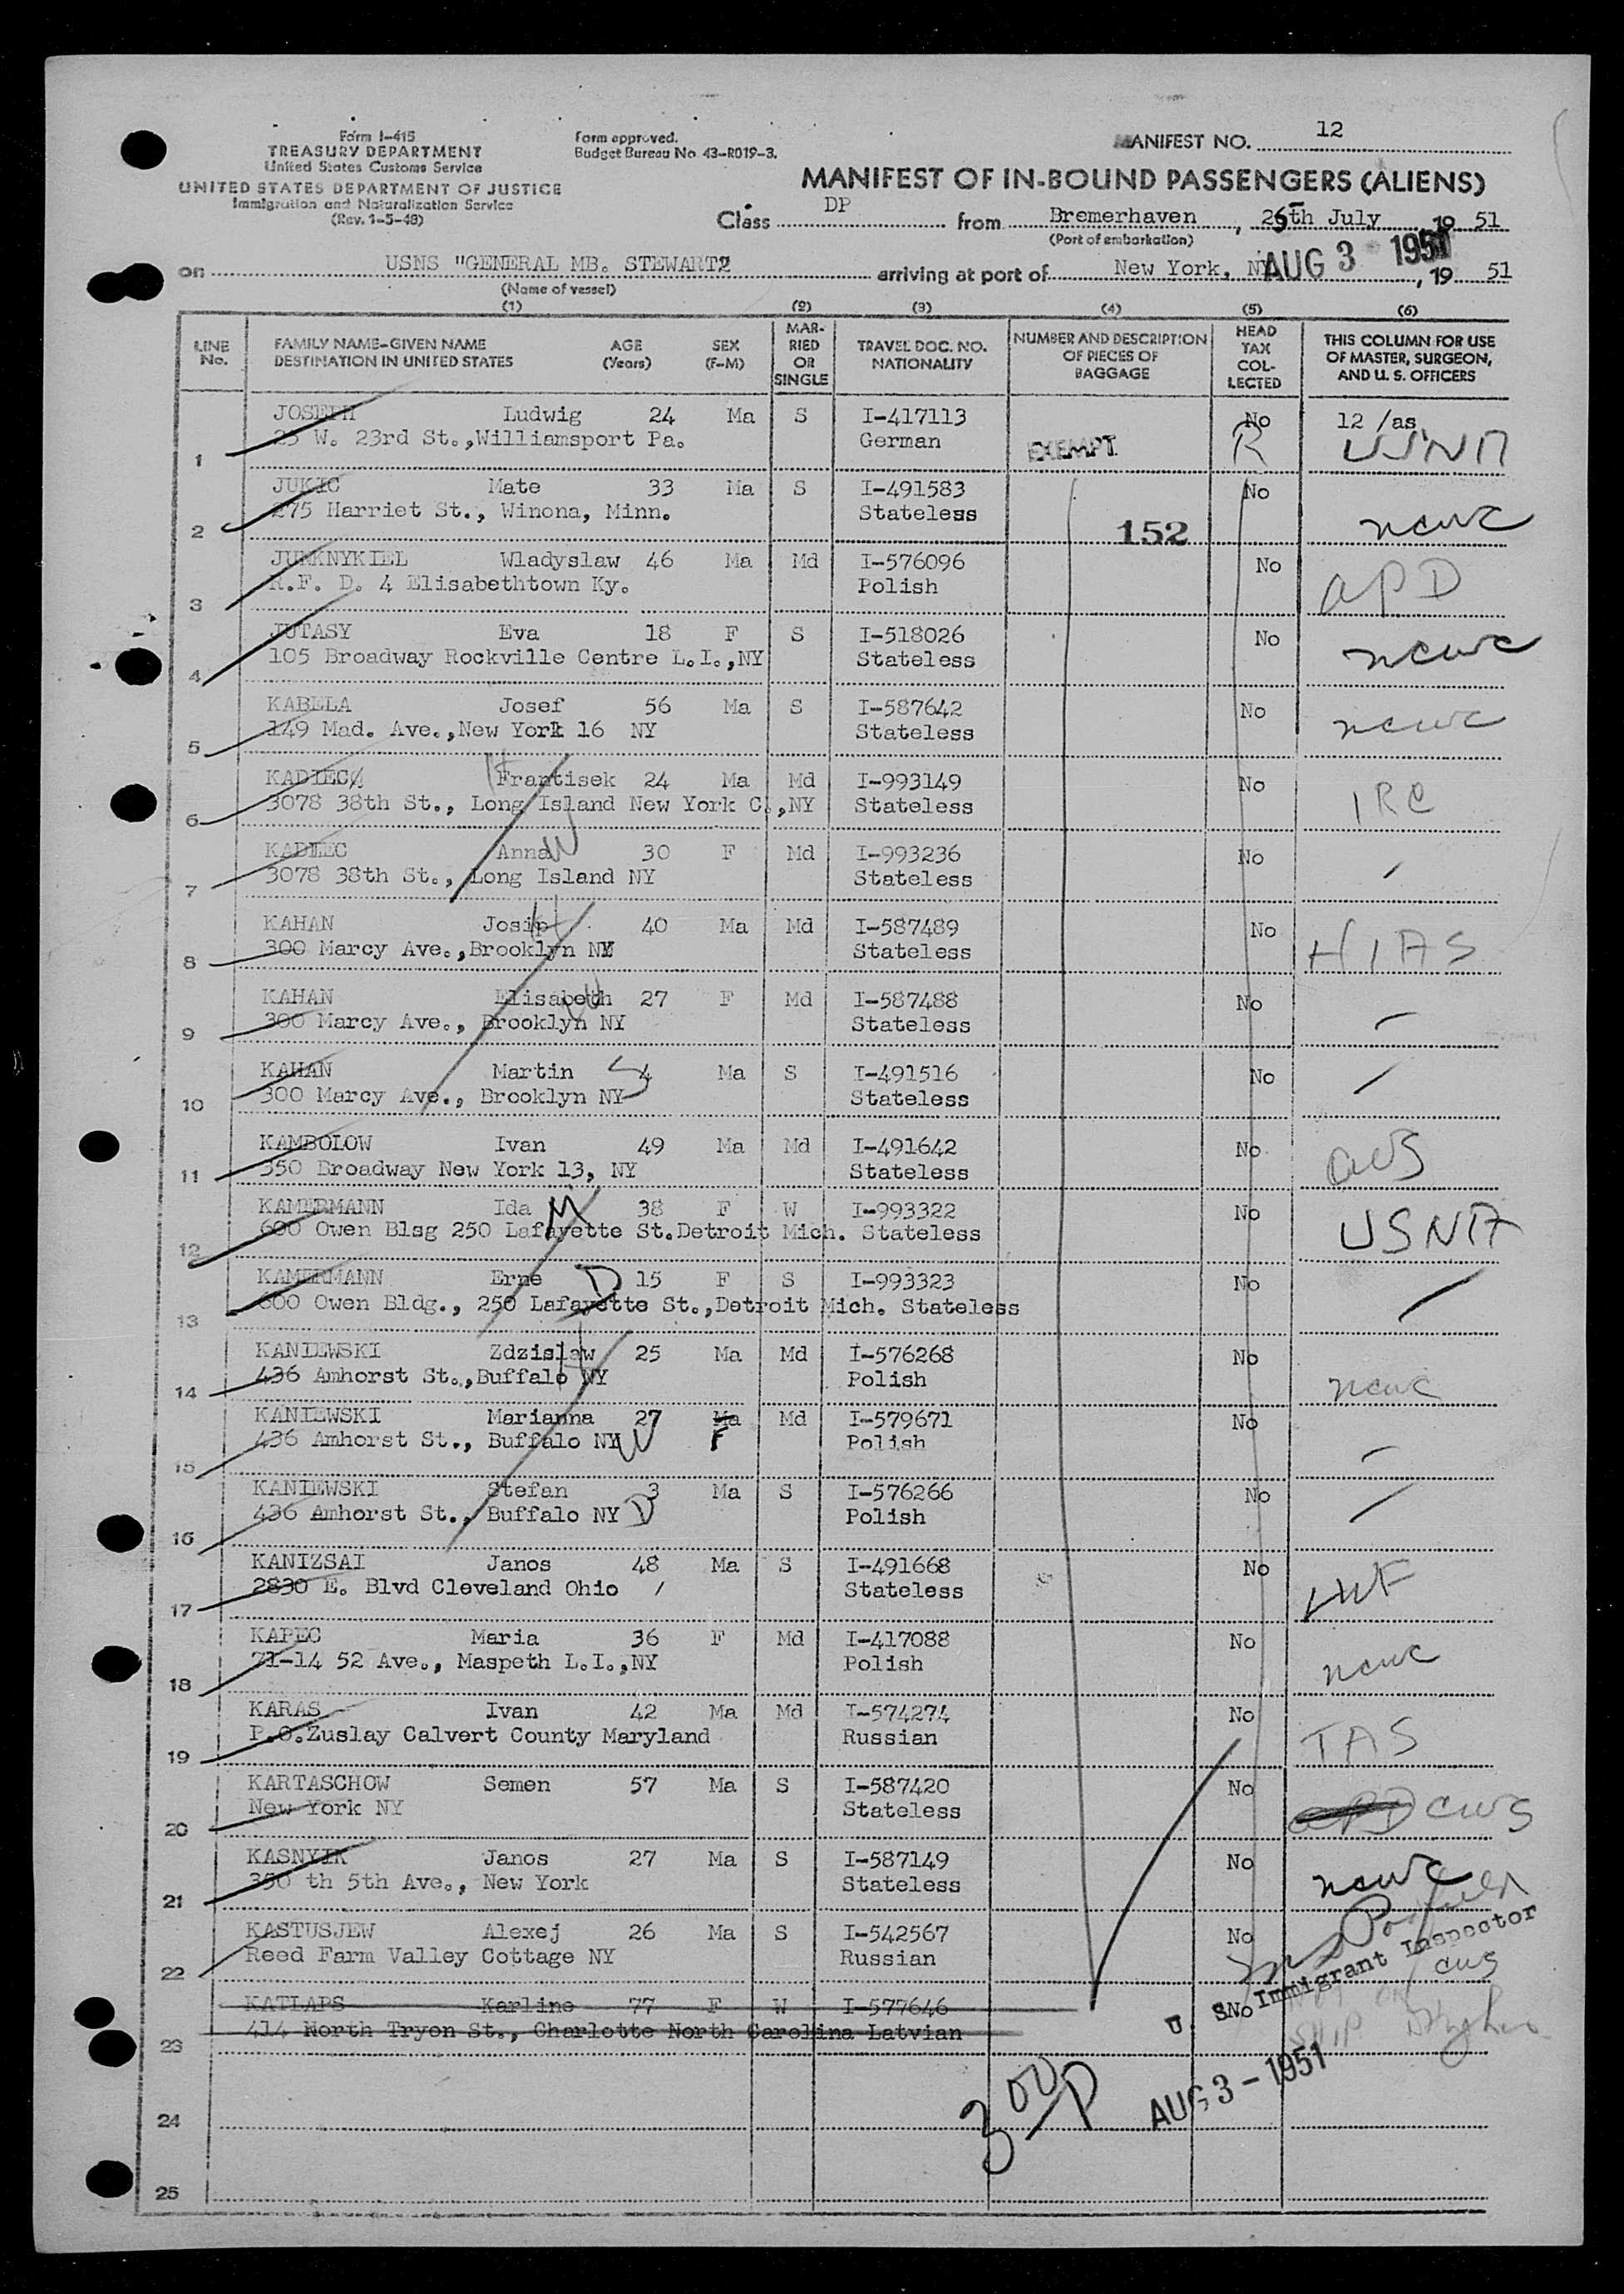 Form I-415
TREASURY DEPARTMENT
United States Customs Service
UNITED STATES DEPARTMENT OF JUSTICE
Immigration and Naturalization Service
(Rev. 1-5-48)
Form approved.
Budget Bureau No. 43-R019-3.
MANIFEST NO. 12
MANIFEST OF IN-BOUND PASSENGERS (ALIENS)
Class DP from Bremerhaven, 26th July 19 51
(Port of embarkation)
on USNS "GENERAL MB. STEWART2 arriving at port of New York, NY AUG 3 1951, 19 51
(Name of vessel)
(1) (2) (3) (4) (5) (6)
LINE No. FAMILY NAME-GIVEN NAME DESTINATION IN UNITED STATES AGE (Years) SEX (F-M) MARRIED OR SINGLE TRAVEL DOC. NO. NATIONALITY NUMBER AND DESCRIPTION OF PIECES OF BAGGAGE HEAD TAX COLLECTED THIS COLUMN FOR USE OF MASTER, SURGEON, AND U. S. OFFICERS
JOSEPH Ludwig 24 Ma S I-417113 No 12 /as
1 25 W. 23rd St.,Williamsport Pa. German EXEMPT R USNA
JUKIC Mate 33 Ma S I-491583 No
2 275 Harriet St., Winona, Minn. Stateless 152 ncwc
JURKNYKIEL Wladyslaw 46 Ma Md I-576096 No
3 R.F. D. 4 Elisabethtown Ky. Polish APD
JUTASY Eva 18 F S I-518026 No
4 105 Broadway Rockville Centre L.I.,NY Stateless ncwc
KABELA Josef 56 Ma S I-587642 No
5 149 Mad. Ave.,New York 16 NY Stateless ncwc
KADLEC Frantisek 24 Ma Md I-993149 No
6 3078 38th St., Long Island New York C.,NY Stateless IRC
KADLEC Anna W 30 F Md I-993236 No
7 3078 38th St., Long Island NY Stateless
KAHAN Josip 40 Ma Md I-587489 No
8 300 Marcy Ave.,Brooklyn NY Stateless HIAS
KAHAN Elisabeth 27 F Md I-587488 No
9 300 Marcy Ave., Brooklyn NY W Stateless
KAHAN Martin S 4 Ma S I-491516 No
10 300 Marcy Ave., Brooklyn NY Stateless
KAMBOLOW Ivan 49 Ma Md I-491642 No
11 350 Broadway New York 13, NY Stateless cws
KAMERMANN Ida M 38 F W I-993322 No
12 600 Owen Blsg 250 Lafayette St.Detroit Mich. Stateless USNA
KAMERMANN Erne D 15 F S I-993323 No
13 600 Owen Bldg., 250 Lafayette St.,Detroit Mich. Stateless
KANIEWSKI Zdzislaw 25 Ma Md I-576268 No
14 436 Amhorst St.,Buffalo NY Polish ncwc
KANIEWSKI Marianna 27 Ma F Md I-579671 No
15 436 Amhorst St., Buffalo NY W Polish
KANIEWSKI Stefan 3 Ma S I-576266 No
16 436 Amhorst St., Buffalo NY D Polish
KANIZSAI Janos 48 Ma S I-491668 No
17 2830 E. Blvd Cleveland Ohio Stateless LWF
KAPEC Maria 36 F Md I-417088 No
18 71-14 52 Ave., Maspeth L.I.,NY Polish ncwc
KARAS Ivan 42 Ma Md I-574274 No
19 P.O.Zuslay Calvert County Maryland Russian TAS
KARTASCHOW Semen 57 Ma S I-587420 No
20 New York NY Stateless APD cws
KASNYIK Janos 27 Ma S I-587149 No
21 350 th 5th Ave., New York Stateless ncwc
KASTUSJEW Alexej 26 Ma S I-542567 No
22 Reed Farm Valley Cottage NY Russian cws
U. S. Immigrant Inspector
KATLAPS Karline 77 F W I-577646 No
23 414 North Tryon St., Charlotte North Carolina Latvian
NOT ON SHIP
AUG 3 - 1951
24
25